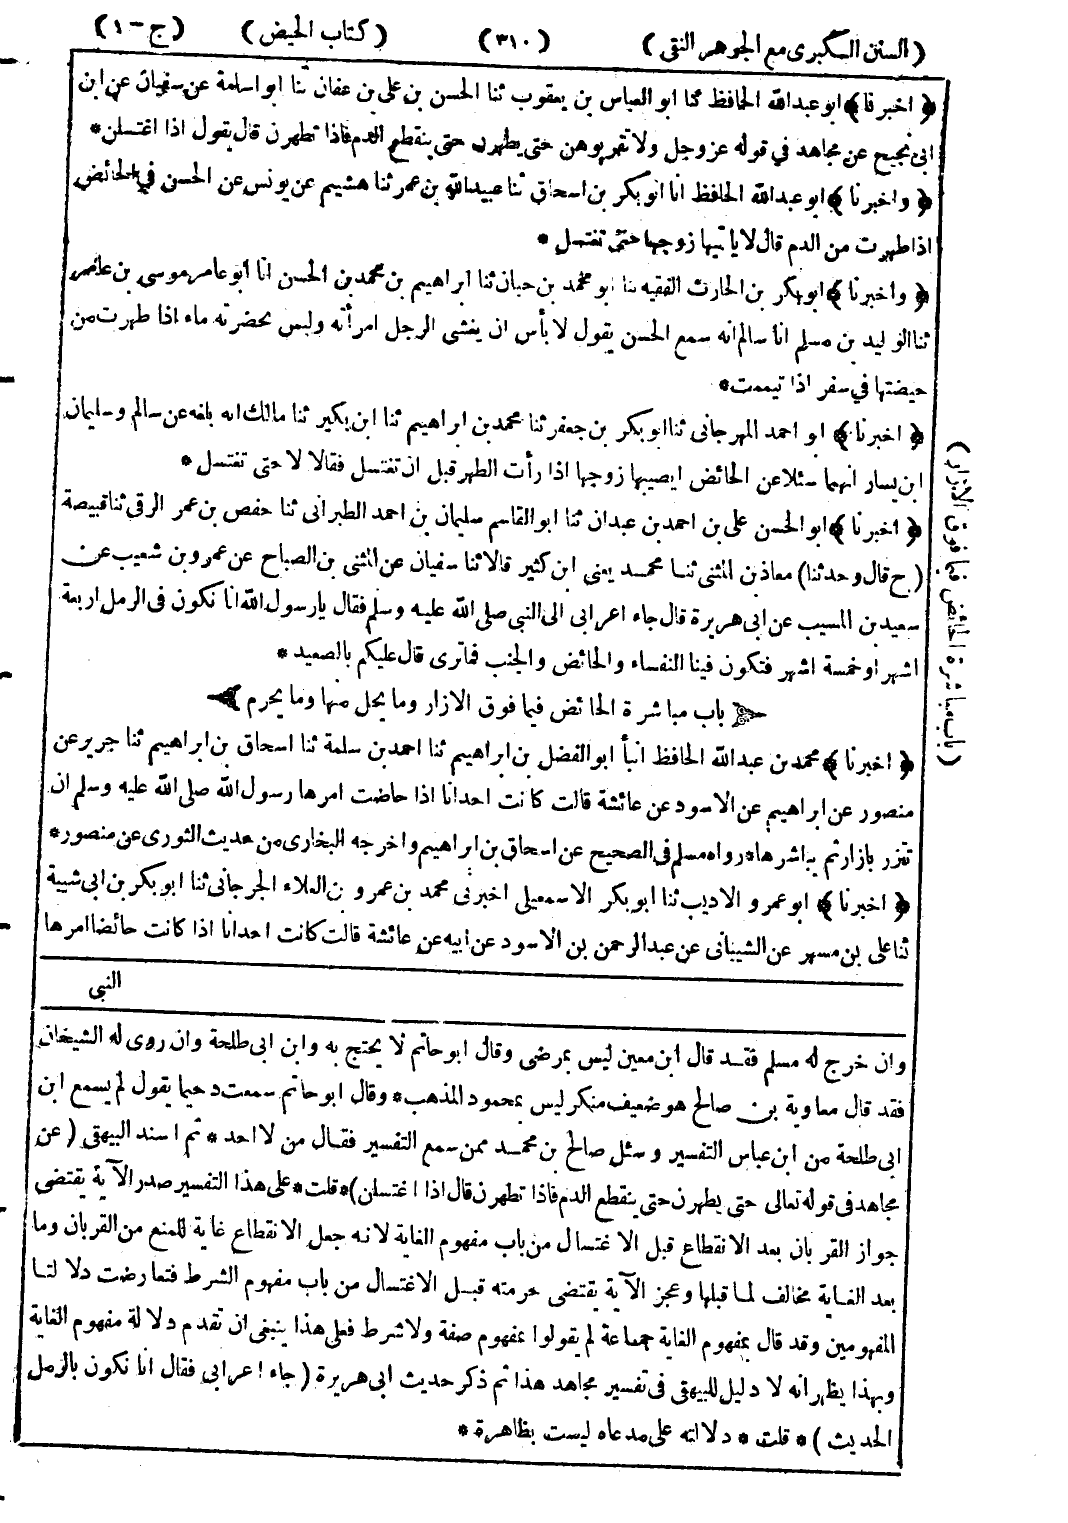 ( السنن الكبرى مع الجوهر النقى ) ( ٣١٠ ) ( كتاب الحيض ) ( ج - ١ )
﴿ اخبرنا ﴾ ابو عبدالله الحافظ ثنا ابو العباس بن يعقوب ثنا الحسن بن على بن عفان ثنا ابو اسامة عن سفيان عن ابن
ابى نجيح عن مجاهد في قوله عز وجل ولا تقربوهن حتى يطهرن حتى ينقطع الدم فاذا تطهرن قال يقول اذا اغتسلن *
﴿ واخبرنا ﴾ ابو عبدالله الحافظ انا ابو بكر بن اسحاق ثنا عبيد الله بن عمر ثنا هشيم عن يونس عن الحسن في الحائض
اذا طهرت من الدم قال لا ياتيها زوجها حتى تغتسل *
﴿ واخبرنا ﴾ ابو بكر بن الحارث الفقيه ثنا ابو محمد بن حبان ثنا ابراهيم بن محمد بن الحسن انا ابو عامر موسى بن عامر
ثنا الوليد بن مسلم انا سالم انه سمع الحسن يقول لا بأس ان يغشى الرجل امرأته وليس بحضرته ماء اذا طهرت من
حيضتها في سفر اذا تيممت *
﴿ اخبرنا ﴾ ابو احمد المهرجانى ثنا ابو بكر بن جعفر ثنا محمد بن ابراهيم ثنا ابن بكير ثنا مالك انه بلغه عن سالم وسليمان
ابن يسار انهما سئلا عن الحائض ايصيبها زوجها اذا رأت الطهر قبل ان تغتسل فقالا لا حتى تغتسل *
﴿ اخبرنا ﴾ ابو الحسن على بن احمد بن عبدان ثنا ابو القاسم سليمان بن احمد الطبرانى ثنا حفص بن عمر الرقى ثنا قبيصة
( ح قال وحدثنا ) معاذ بن المثنى ثنا محمد يعنى ابن كثير قالا ثنا سفيان عن المثنى بن الصباح عن عمرو بن شعيب عن
سعيد بن المسيب عن ابى هريرة قال جاء اعرابى الى النبى صلى الله عليه وسلم فقال يارسول الله انا نكون فى الرمل اربعة
اشهر او خمسة اشهر فتكون فينا النفساء والحائض والجنب فما ترى قال عليكم بالصعيد *
باب مباشرة الحائض فيما فوق الازار وما يحل منها وما يحرم
﴿ اخبرنا ﴾ محمد بن عبدالله الحافظ انبأ ابو الفضل بن ابراهيم ثنا احمد بن سلمة ثنا اسحاق بن ابراهيم ثنا جرير عن
منصور عن ابراهيم عن الاسود عن عائشة قالت كانت احدانا اذا حاضت امرها رسول الله صلى الله عليه وسلم ان
تتزر بازار ثم يباشرها * رواه مسلم فى الصحيح عن اسحاق بن ابراهيم واخرجه البخارى من حديث الثورى عن منصور *
﴿ اخبرنا ﴾ ابو عمرو الاديب ثنا ابو بكر الاسمعيلى اخبرنى محمد بن عمرو بن العلاء الجرجانى ثنا ابو بكر بن ابى شيبة
ثنا على بن مسهر عن الشيبانى عن عبد الرحمن بن الاسود عن ابيه عن عائشة قالت كانت احدانا اذا كانت حائضا امرها
النبى
وان خرج له مسلم فقد قال ابن معين ليس بمرضى وقال ابو حاتم لا يحتج به وابن ابى طلحة وان روى له الشيخان
فقد قال معاوية بن صالح هو ضعيف منكر ليس بمحمود المذهب * وقال ابو حاتم سمعت دحيما يقول لم يسمع ابن
ابى طلحة من ابن عباس التفسير وسئل صالح بن محمد ممن سمع التفسير فقال من لا احد * ثم اسند البيهقى ( عن
مجاهد فى قوله تعالى حتى يطهرن حتى ينقطع الدم فاذا تطهرن قال اذا اغتسلن ) * قلت * على هذا التفسير صدر الآية يقتضى
جواز القربان بعد الانقطاع قبل الاغتسال من باب مفهوم الغاية لانه جعل الانقطاع غاية للمنع من القربان وما
بعد الغاية مخالف لما قبلها وعجز الآية يقتضى حرمته قبل الاغتسال من باب مفهوم الشرط فتعارضت دلالتا
المفهومين وقد قال بمفهوم الغاية جماعة لم يقولوا بمفهوم صفة ولا شرط فعلى هذا ينبغى ان تقدم دلالة مفهوم الغاية
وبهذا يظهر انه لا دليل للبيهقى فى تفسير مجاهد هذا ثم ذكر حديث ابى هريرة ( جاء اعرابى فقال انا نكون بالرمل
الحديث ) * قلت * دلالته على مدعاه ليست بظاهرة *
( باب مباشرة الحائض فيما فوق الازار )